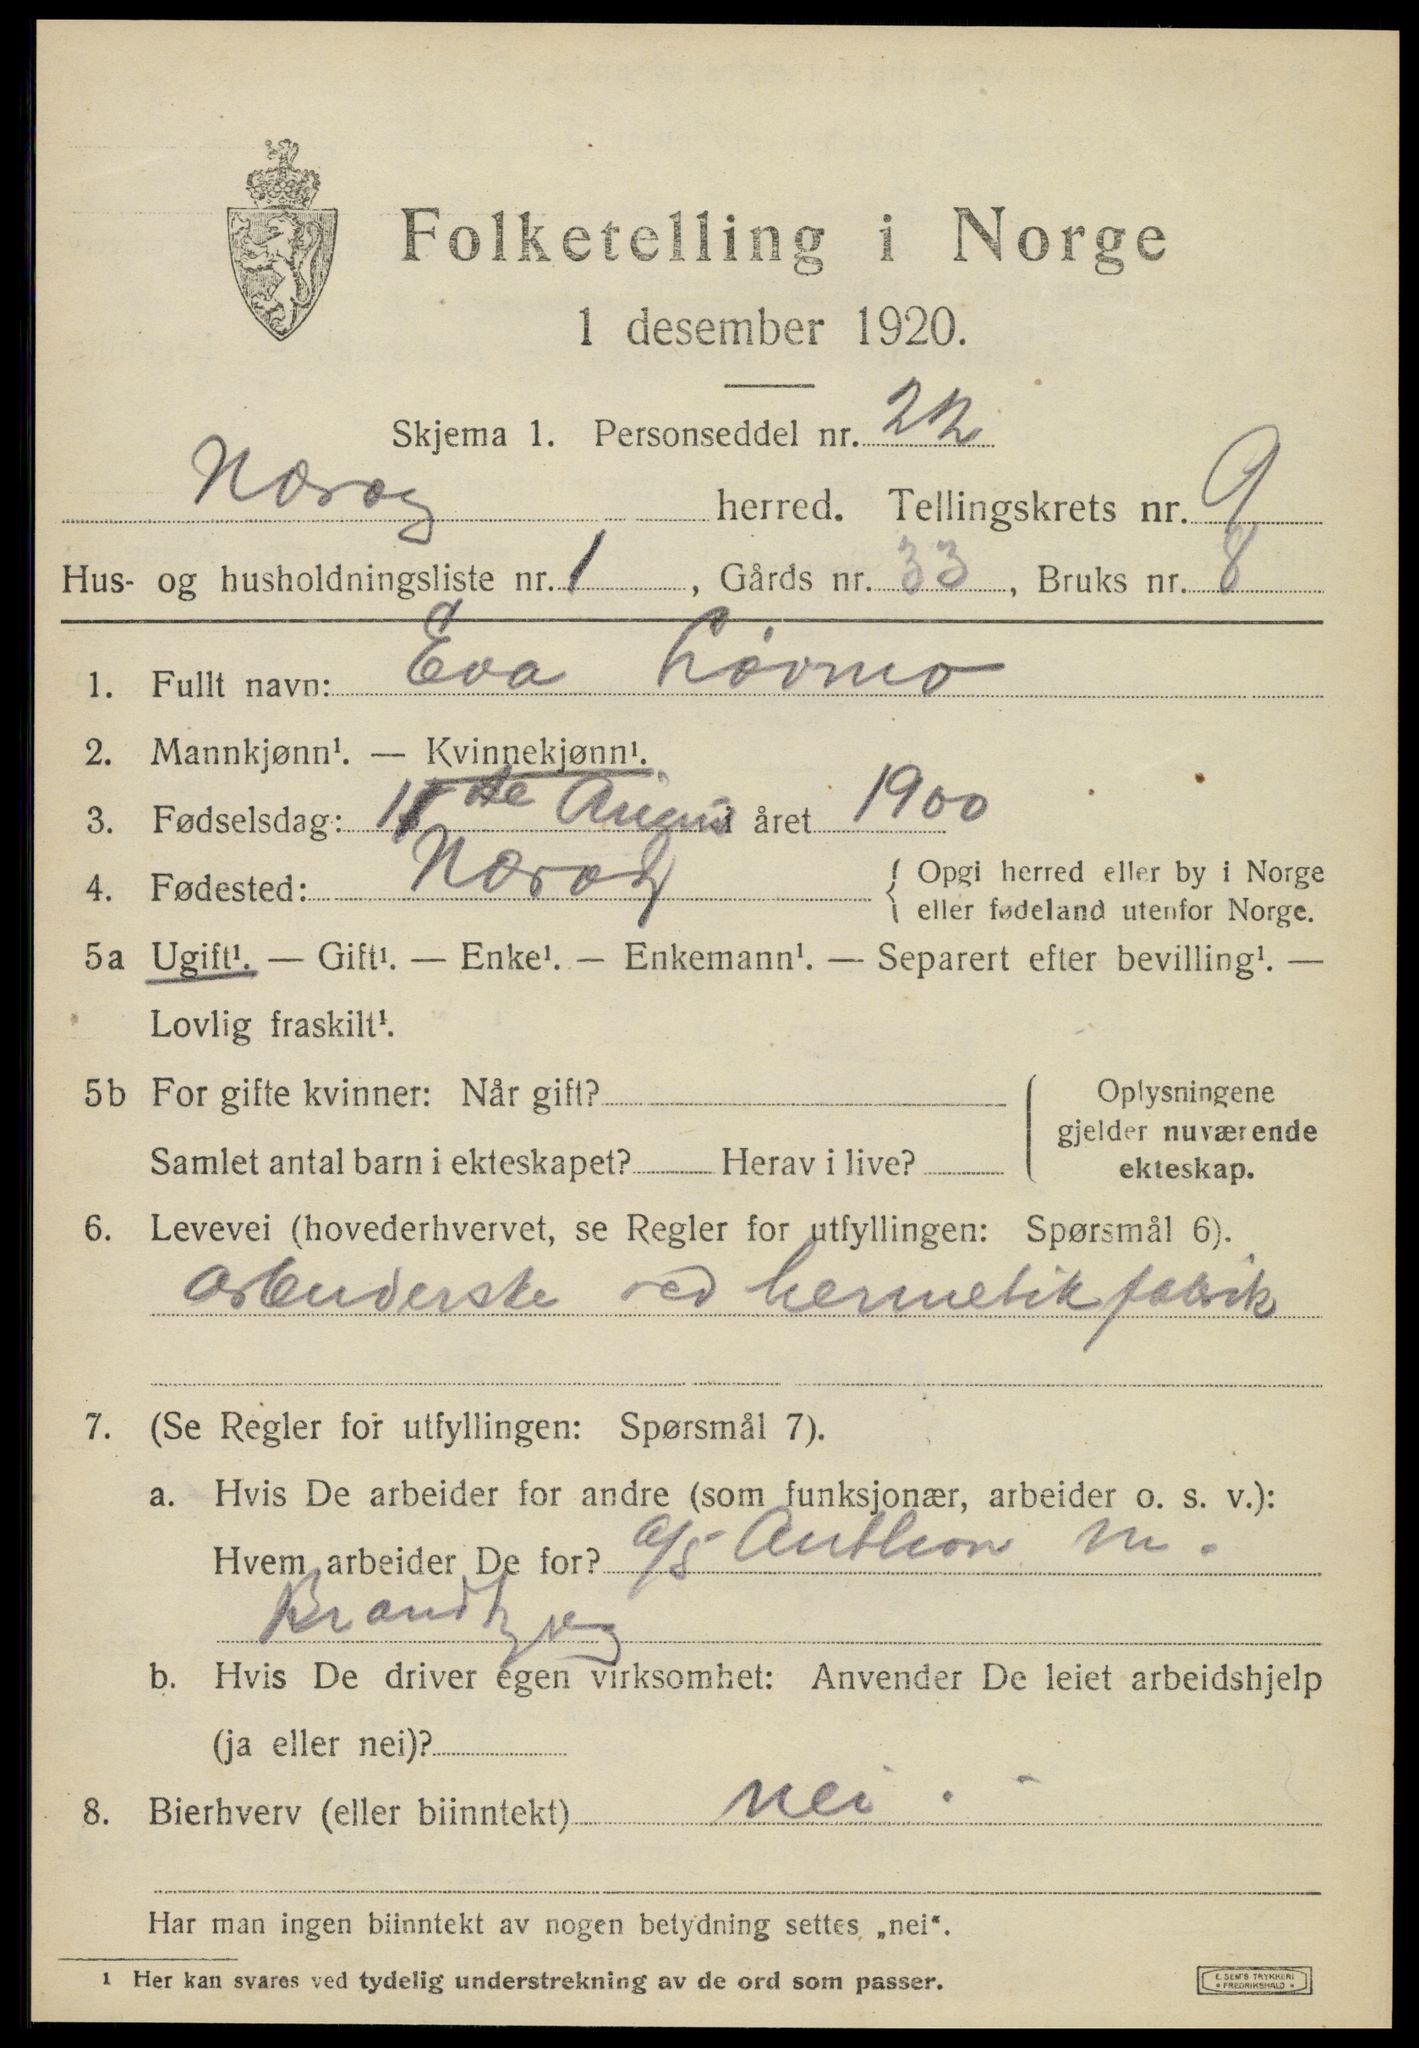 Folketelling i Norge
1 desember 1920.
Skjema 1. Personseddel nr. 22
Nærøy herred. Tellingskrets nr. 9
Hus- og husholdningsliste nr. 1, Gårds nr. 33, Bruks nr. 8
1. Fullt navn: Eva Løvmo
2. Mannkjønn¹. — Kvinnekjønn¹.
3. Fødselsdag: året 1900
4. Fødested: Nærøy { Opgi herred eller by i Norge
eller fødeland utenfor Norge.
5a Ugift¹. — Gift¹. — Enke¹. — Enkemann¹. — Separert efter bevilling¹. —
Lovlig fraskilt¹.
5b For gifte kvinner: Når gift?
Samlet antal barn i ekteskapet? Herav i live?
Oplysningene
gjelder nuværende
ekteskap.
6. Levevei (hovederhvervet, se Regler for utfyllingen: Spørsmål 6).
arbeiderske ved hermetikfabrik
7. (Se Regler for utfyllingen: Spørsmål 7).
a. Hvis De arbeider for andre (som funksjonær, arbeider o. s. v.):
Hvem arbeider De for? a/s Anthon M.
Brandtzæg
b. Hvis De driver egen virksomhet: Anvender De leiet arbeidshjelp
(ja eller nei)?
8. Bierhverv (eller biinntekt) nei.
Har man ingen biinntekt av nogen betydning settes „nei“.
1 Her kan svares ved tydelig understrekning av de ord som passer.
E. SEM'S TRYKKERI
* FREDRIKSHALD *